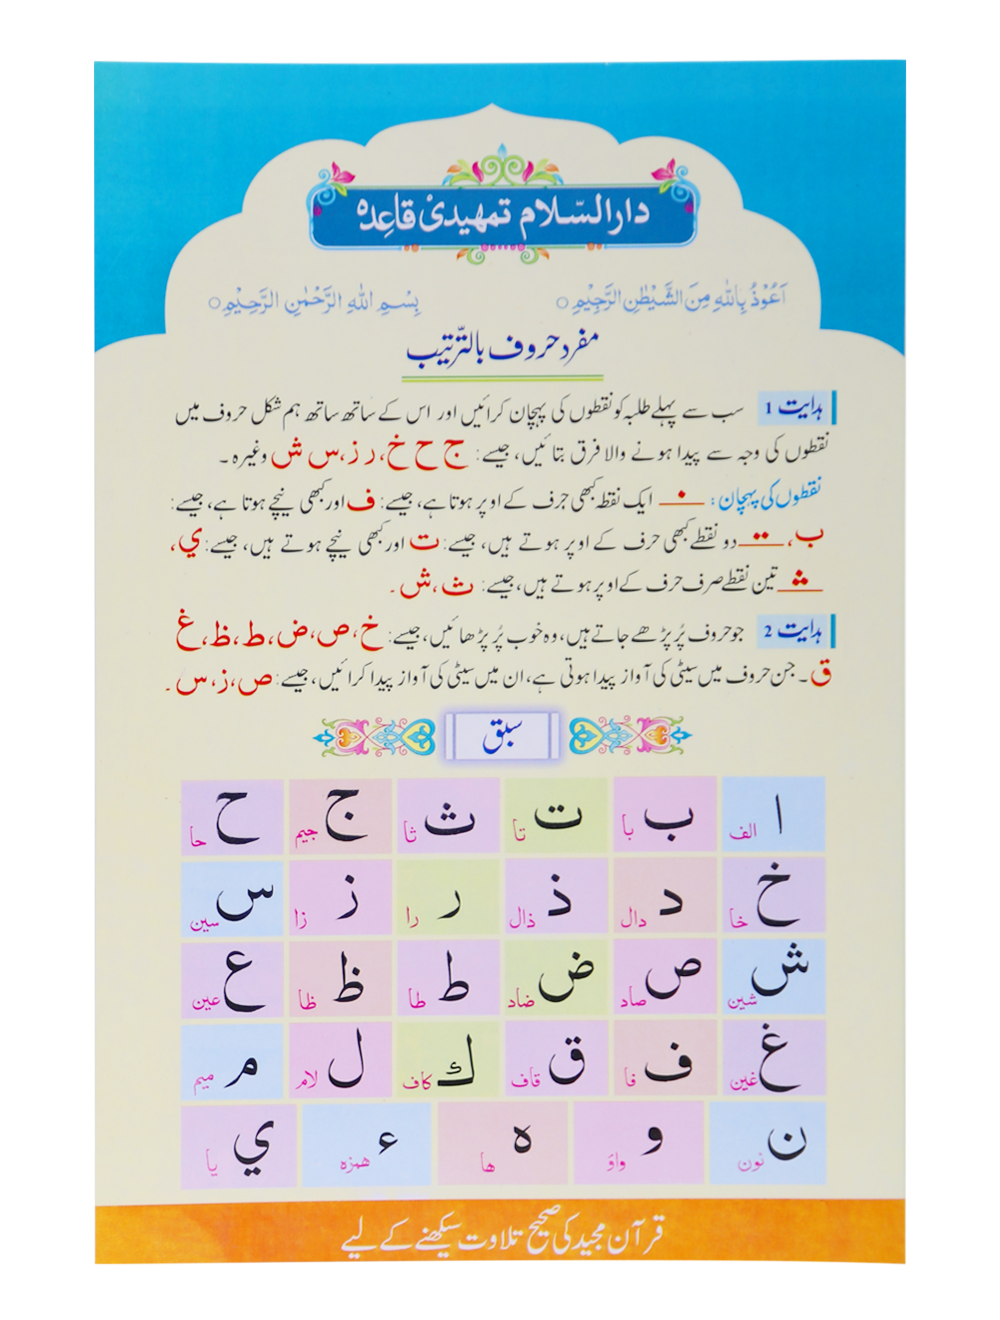 دارالسّلام تمهیدی قاعِدہ
اَعُوْذُ بِاللّٰهِ مِنَ الشَّيْطٰنِ الرَّجِيْمِ ○ بِسْمِ اللّٰهِ الرَّحْمٰنِ الرَّحِيْمِ ○
مفرد حروف بالتّرتیب
ہدایت 1 سب سے پہلے طلبہ کو نقطوں کی پہچان کرائیں اور اس کے ساتھ ساتھ ہم شکل حروف میں
نقطوں کی وجہ سے پیدا ہونے والا فرق بتائیں، جیسے: ج ح خ، ر ز، س ش وغیرہ ۔
نقطوں کی پہچان: ـ ایک نقطہ کبھی حرف کے اوپر ہوتا ہے، جیسے: ف اور کبھی نیچے ہوتا ہے، جیسے:
ب، ـ دو نقطے کبھی حرف کے اوپر ہوتے ہیں، جیسے: ت اور کبھی نیچے ہوتے ہیں، جیسے: ي،
ـ تین نقطے صرف حرف کے اوپر ہوتے ہیں، جیسے: ث، ش ۔
ہدایت 2 جو حروف پُر پڑھے جاتے ہیں، وہ خوب پُر پڑھائیں، جیسے: خ، ص، ض، ط، ظ، غ
ق ۔ جن حروف میں سیٹی کی آواز پیدا ہوتی ہے، ان میں سیٹی کی آواز پیدا کرائیں، جیسے: ص، ز، س ۔
سبق
ا الف ب با ت تا ث ثا ج جیم ح حا
خ خا د دال ذ ذال ر را ز زا س سین
ش شین ص صاد ض ضاد ط طا ظ ظا ع عین
غ غین ف فا ق قاف ك کاف ل لام م میم
ن نون و واؤ ہ ھا ء ھمزہ ي یا
قرآن مجید کی صحیح تلاوت سیکھنے کے لیے